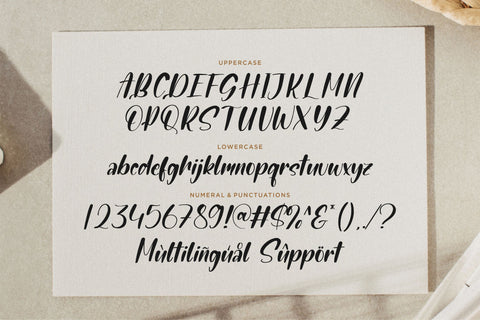 UPPERCASE
ABCDEFGHIJKLMN
OPQRSTUVWXYZ
LOWERCASE
abcdefghijklmnopqrstuvwxyz
NUMERAL & PUNCTUATIONS
1234567890!@#$%^&*(),./?
Mùltilingúål Sûppört